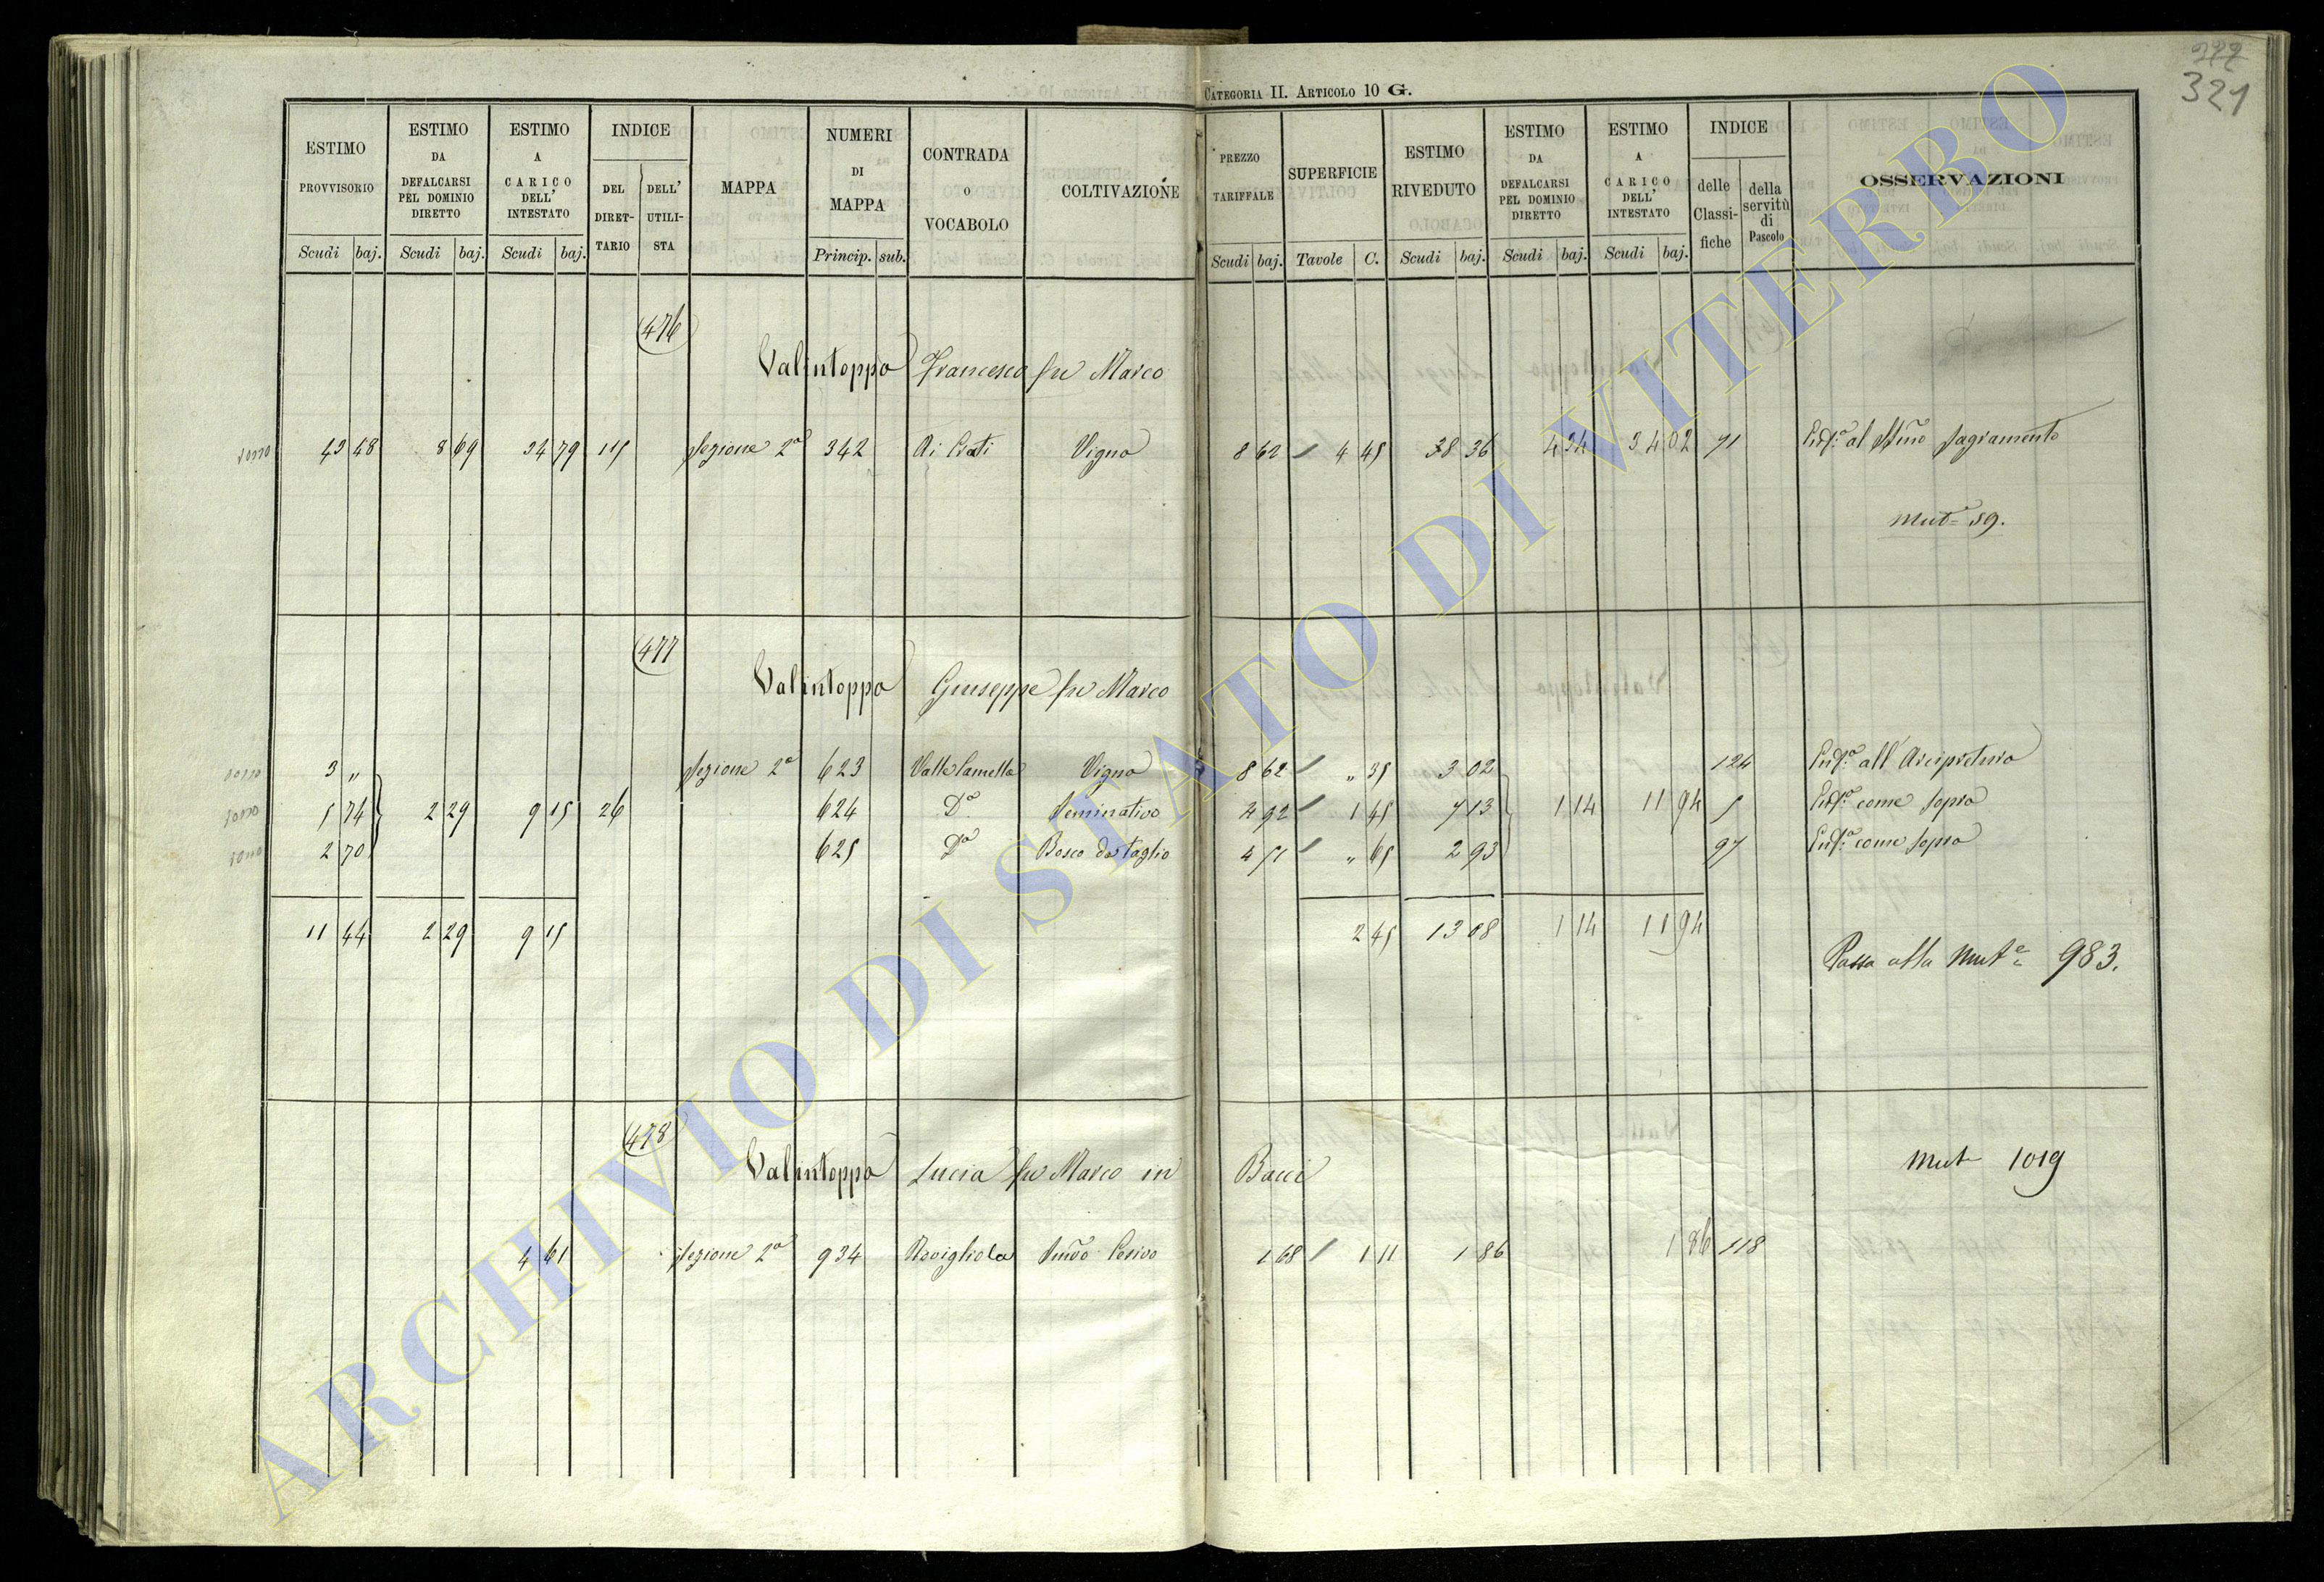 CATEGORIA II. ARTICOLO 10 G.
321
ESTIMO PROVVISORIO Scudi baj.
ESTIMO DA DEFALCARSI PEL DOMINIO DIRETTO Scudi baj.
ESTIMO A CARICO DELL' INTESTATO Scudi baj.
INDICE DEL DIRETTARIO DELL' UTILISTA
MAPPA
NUMERI DI MAPPA Princip. sub.
CONTRADA O VOCABOLO
COLTIVAZIONE
PREZZO TARIFFALE Scudi baj.
SUPERFICIE Tavole C.
ESTIMO RIVEDUTO Scudi baj.
ESTIMO DA DEFALCARSI PEL DOMINIO DIRETTO Scudi baj.
ESTIMO A CARICO DELL' INTESTATO Scudi baj.
INDICE delle Classifiche della servitù di Pascolo
OSSERVAZIONI
476
Valintoppa Francesco fu Marco
43 48 8 69 34 79 115 Sezione 2a 342 Ai Prati Vigna 8 62 4 45 38 36 4 34 34 02 71 al Smo Sagramento
Mut.e 59.
477
Valintoppa Giuseppe fu Marco
3 " Sezione 2a 623 Valle Vigna 8 62 " 35 3 02 124 all' Arcipretura
5 74 2 29 9 15 26 624 Do Seminativo 4 92 1 45 7 13 1 14 11 94 5 come sopra
2 70 625 Do Bosco da taglio 4 51 " 65 2 93 97 come sopra
11 44 2 29 9 15 2 45 13 08 1 14 11 94
Passa alla Mut.e 983.
478
Valintoppa Lucia fu Marco in Bacci
Mut 1019
4 61 Sezione 2a 934 Rovigliola 1 68 1 11 1 86 1 86 118
ARCHIVIO DI STATO DI VITERBO